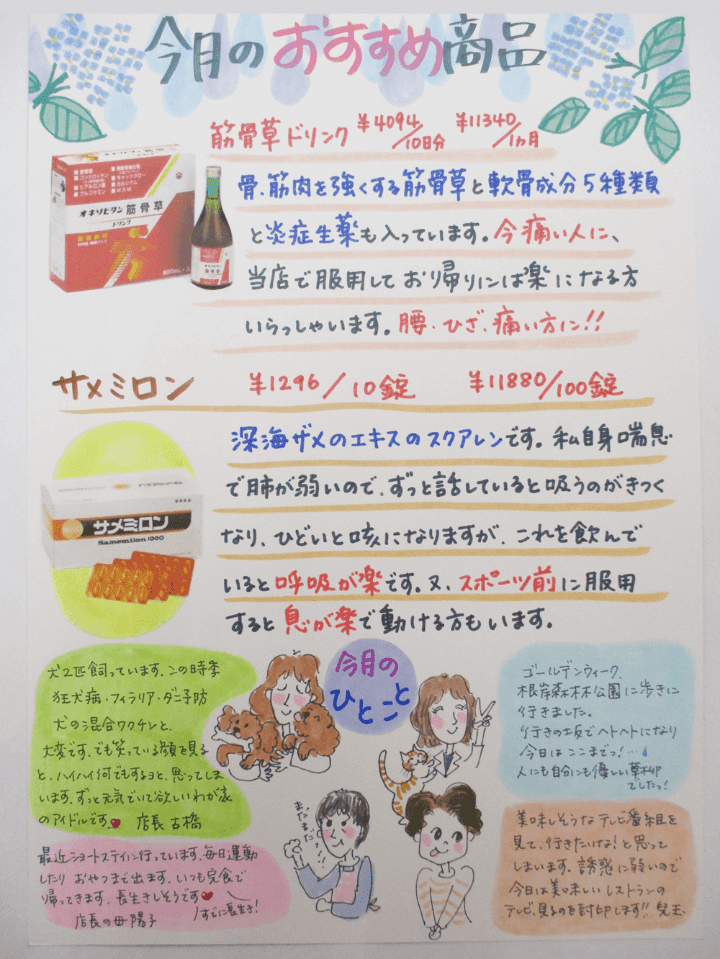 今月のおすすめ商品
筋骨草ドリンク ¥4094/10日分 ¥11340/1ヵ月
オキソピタン 筋骨草
ドリンク
骨、筋肉を強くする筋骨草と軟骨成分5種類
と炎症生薬も入っています。今痛い人に、
当店で服用しておリ帰りには楽になる方
いらっしゃいます。腰・ひざ、痛い方に!!
サメミロン ¥1296/10錠 ¥11880/100錠
サメミロン
Samemilon 1000
深海ザメのエキスのスクアレンです。私自身喘息
で肺が弱いので、ずっと話していると吸うのがきつく
なり、ひどいと咳になりますが、これを飲んで
いると呼吸が楽です。又、スポーツ前に服用
すると息が楽で動ける方もいます。
今月の
ひとこと
犬2匹飼っています。この時季
狂犬病・フィラリア・ダニ予防
犬の混合ワクチンと、
大変です。でも笑っている顔を見る
と、ハイハイ何でもするヨと、思ってしま
います。ずっと元気でいて欲しいわが家
のアイドルです。 店長 古橋
ゴールデンウィーク、
根岸森林公園に歩きに
行きました。
行きの坂でヘトヘトになり
今日はここまでっ!
人にも自分にも優しい薬師
でしたっ!
最近ショートステイに行っています。毎日運動
したり おやつまで出ます。いつも完食で
帰ってきます。長生きしそうです
すでに長生き!
店長の母 陽子
まだまだっ!!
美味しそうなテレビ番組を
見て、行きたいな!と思って
しまいます。誘惑に弱いので
今日は美味しいレストランの
テレビ、見るのを封印します!! 児玉